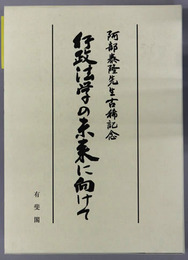 阿部泰隆先生古稀記念
行政法学の未来に向けて
有斐閣